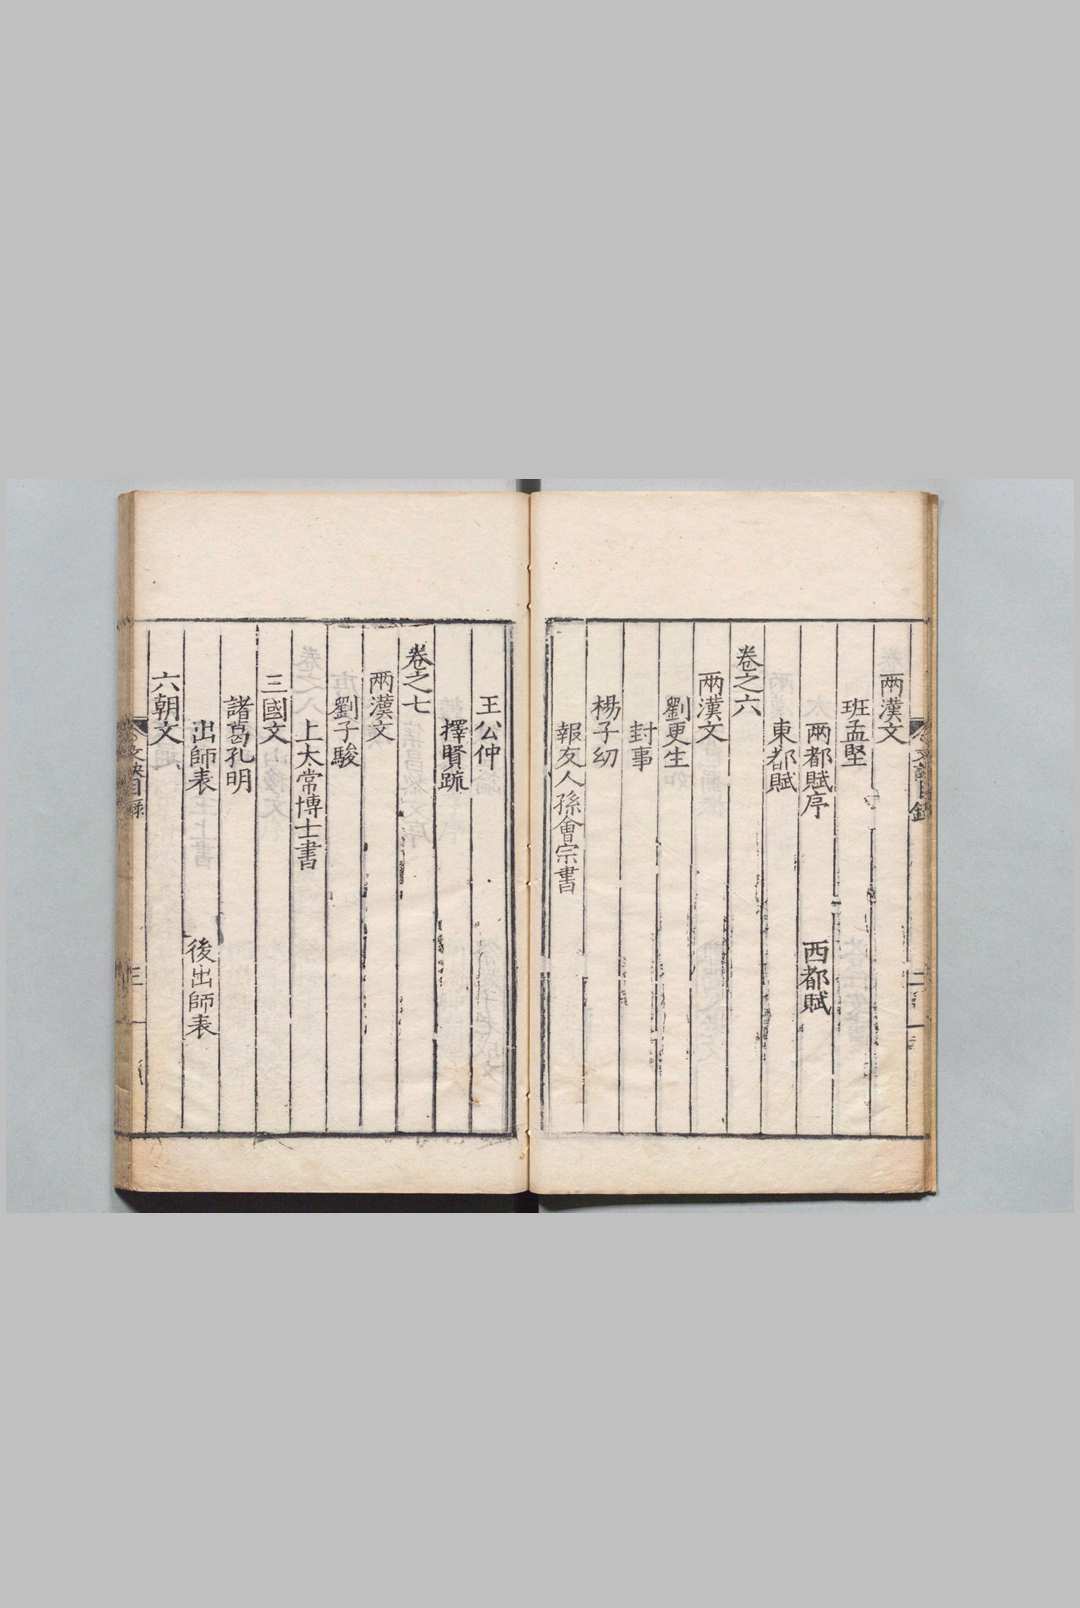 兩漢文
班孟堅
兩都賦序　西都賦
東都賦
卷之六
兩漢文
劉更生
封事
楊子幼
報友人孫會宗書
王公仲
擇賢疏
卷之七
兩漢文
劉子駿
上太常博士書
三國文
諸葛孔明
出師表　後出師表
六朝文